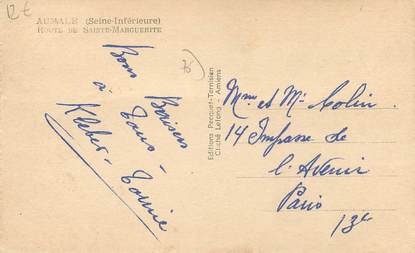 12 €
AUMALE (Seine-Inférieure)
ROUTE DE SAINTE-MARGUERITE
76
Bons Baisers
à Tous -
Kléber - Tounie
Editions Pecquet-Ternisien
Cliché Lefong - Amiens
Mme et Mr Colin
14 Impasse de
l'Avenir
Paris
13e